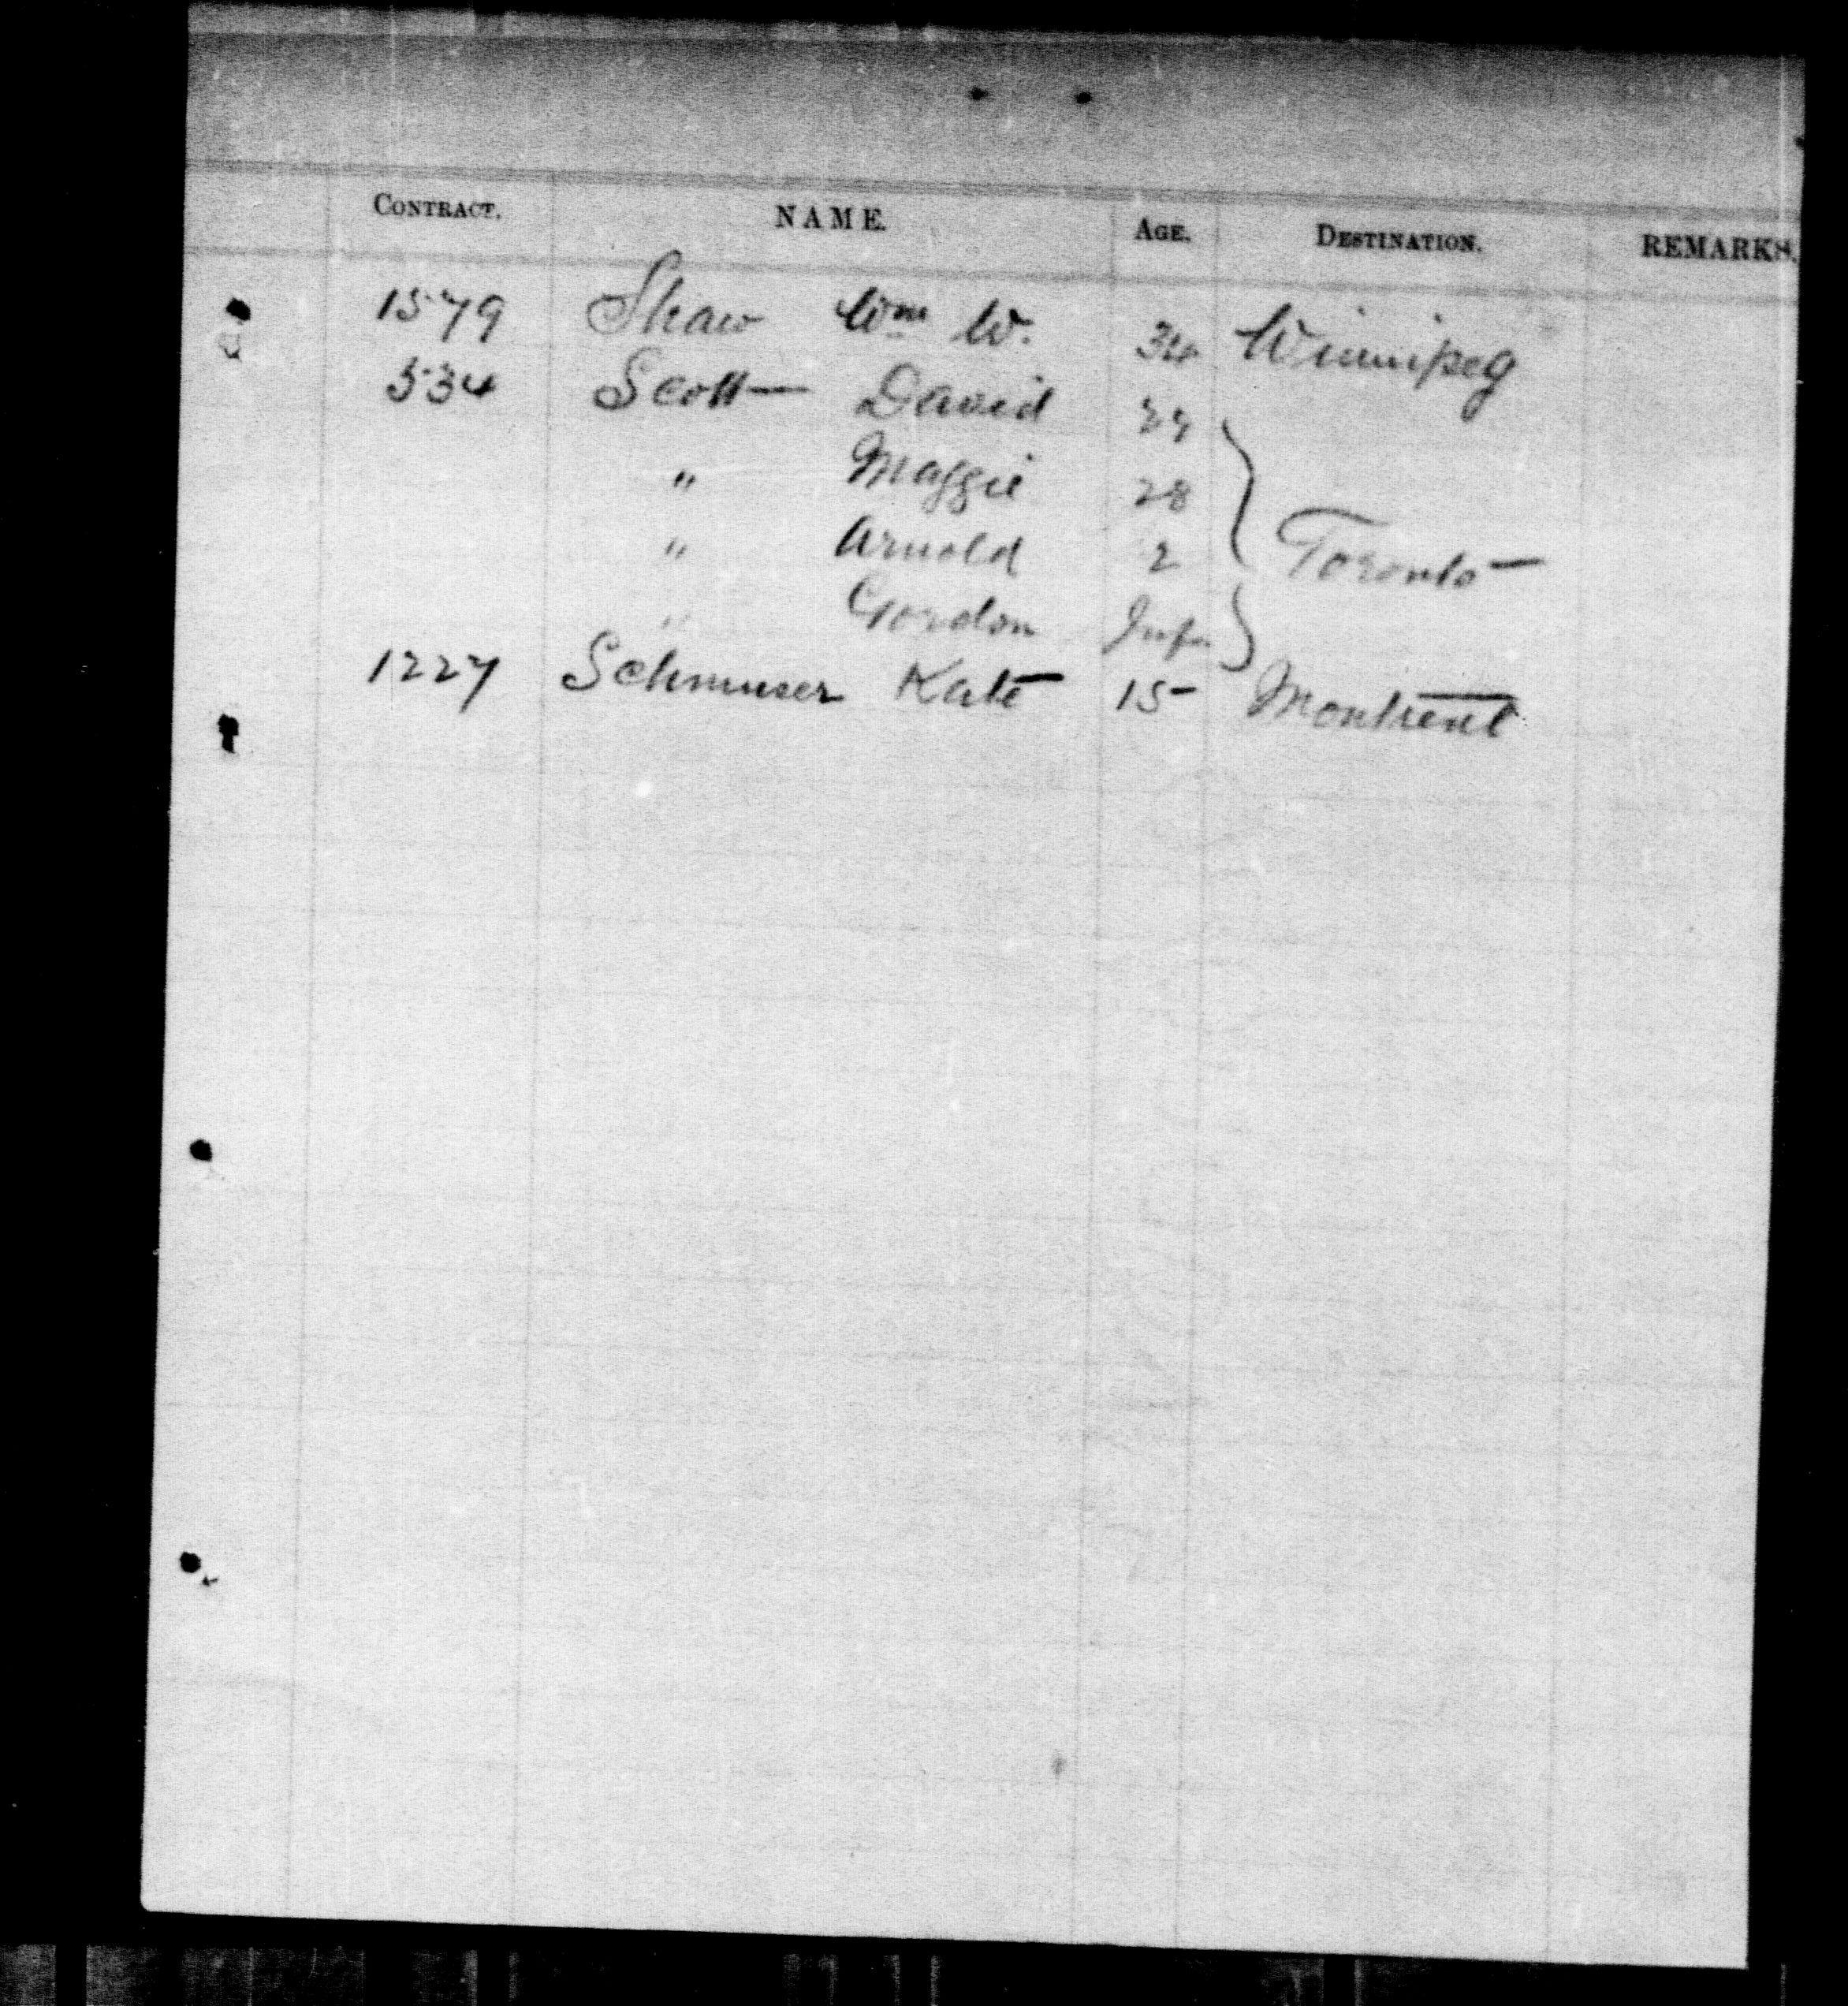 CONTRACT. NAME. AGE. DESTINATION. REMARKS.
1579 Shaw Wm W. 34 Winnipeg
534 Scott David 29
" Maggie 28
" Arnold 2 Toronto
" Gordon Inf.
1227 Kate 15 Montreal